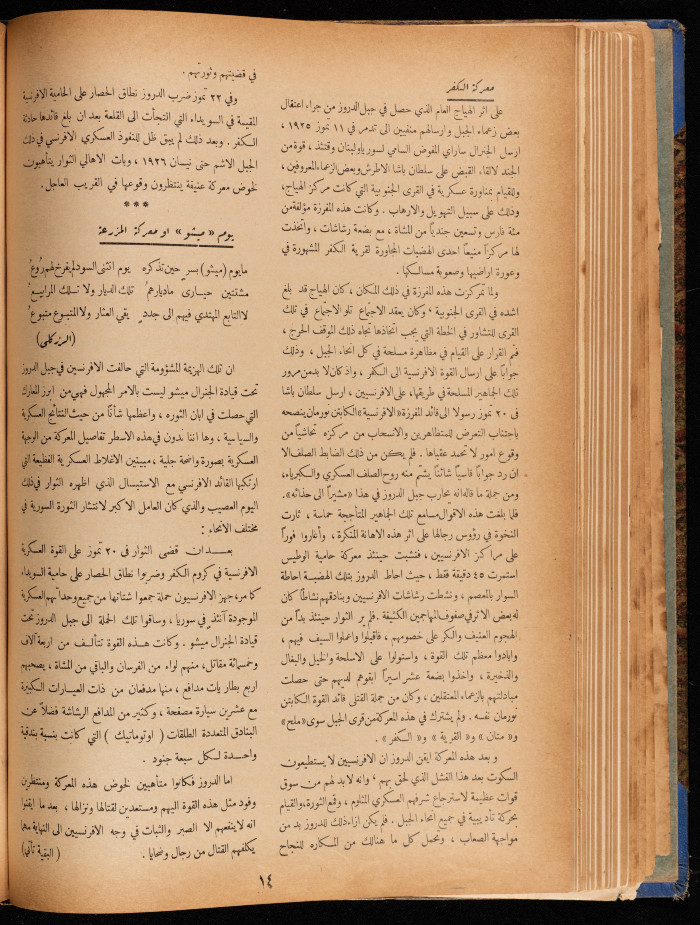 معركة الكفر
على اثر الهياج العام الذي حصل في جبل الدروز من جراء اعتقال
بعض زعماء الجبل وارسالهم منفيين الى تدمر في ١١ تموز ١٩٢٥ ،
ارسل الجنرال ساراي المفوض السامي لسوريا ولبنان وقتئذ ، قوة من
الجند لالقاء القبض على سلطان باشا الاطرش وبعض الزعماء المعروفين ،
وللقيام بمناورة عسكرية في القرى الجنوبية التي كانت مركز الهياج ،
وذلك على سبيل التهويل والارهاب . وكانت هذه المفرزة مؤلفة من
مئة فارس وتسعين جندياً من المشاة ، مع بضعة رشاشات ، واتخذت
لها مركزاً منيعاً احدى الهضبات المجاورة لقرية الكفر المشهورة في
وعورة اراضيها وصعوبة مسالكها .
ولما تمركزت هذه المفرزة في ذلك المكان ، كان الهياج قد بلغ
اشده في القرى الجنوبية ، وكان يعقد الاجتماع تلو الاجتماع في تلك
القرى للتشاور في الخطة التي يجب اتخاذها تجاه ذلك الموقف الحرج ،
فتم القرار على القيام في مظاهرة مسلحة في كل انحاء الجبل ، وذلك
جواباً على ارسال القوة الافرنسية الى الكفر ، واذ كان لا بد من مرور
تلك الجماهير المسلحة في طريقها ، على الافرنسيين ، ارسل سلطان باشا
في ٢٠ تموز رسولا الى قائد المفرزة «الافرنسية» الكابتن نورمان ينصحه
باجتناب التعرض للمتظاهرين والانسحاب من مركزه تحاشياً من
وقوع امور لا تحمد عقباها . فلم يكن من ذلك الضابط الصلف الا
ان رد جواباً قاسياً شائناً يشتم منه روح الصلف العسكري والكبرياء ،
ومن جملة ما قاله انه يحارب جبل الدروز في هذا «مشيراً الى حذائه».
فلما بلغت هذه الاقوال مسامع تلك الجماهير المتأججة حماسة ، ثارت
النخوة في رؤوس رجالها على اثر هذه الاهانة المنكرة ، وأغاروا فوراً
على مراكز الافرنسيين ، فنشبت حينئذ معركة حامية الوطيس
استمرت ٤٥ دقيقة فقط ، حيث احاط الدروز بتلك الهضبة احاطة
السوار بالمعصم ، ونشطت رشاشات الافرنسيين وبنادقهم نشاطاً كان
له بعض الاثر في صفوف المهاجمين الكثيفة . فلم ير الثوار حينئذ بداً من
الهجوم العنيف والكر على خصومهم ، فأقبلوا واعملوا السيف فيهم ،
وابادوا معظم تلك القوة ، واستولوا على الاسلحة والخيل والبغال
والذخيرة ، واخذوا بضعة عشر اسيراً ابقوهم لديهم حتى حصلت
مبادلتهم بالزعماء المعتقلين ، وكان من جملة القتلى قائد القوة الكابتن
نورمان نفسه . ولم يشترك في هذه المعركة من قرى الجبل سوى «ملح»
و« متان » و« القرية » و« الكفر » .
و بعد هذه المعركة ايقن الدروز ان الافرنسيين لا يستطيعون
السكوت بعد هذا الفشل الذي لحق بهم ، وانه لا بد لهم من سوق
قوات عظيمة لاسترجاع شرفهم العسكري المثلوم ، وقمع الثورة ، والقيام
بحركة تأديبية في جميع انحاء الجبل . فلم يكن ازاء ذلك للدروز بد من
مواجهة الصعاب ، وتحمل كل ما هنالك من المكاره للنجاح
في قضيتهم وثورتهم .
وفي ٢٢ تموز ضرب الدروز نطاق الحصار على الحامية الافرنسية
المقيمة في السويداء التي التجأت الى القلعة بعد ان بلغ قائدها حادثة
الكفر . وبعد ذلك لم يبق ظل للنفوذ العسكري الافرنسي في ذلك
الجبل الاشم حتى نيسان ١٩٢٦ ، وبات الاهالي الثوار يتأهبون
لخوض معركة عنيفة ينتظرون وقوعها في القريب العاجل .
***
يوم « ميشو » او معركة المزرعة
ما يوم (ميشو) بسرٍ حين تذكره يوم انثنى السود لم يفرخ لهم رُوعُ
مشتتين حيارى ماديارهمُ تلك الديار ولا تلك المرابيعُ
لا التابع المهتدي فيهم الى جددٍ يقي العثار ولا المتبوع متبوعُ
(الزركلي)
ان تلك الهزيمة المشؤومة التي حالفت الافرنسيين في جبل الدروز
تحت قيادة الجنرال ميشو ليست بالامر المجهول فهي من ابرز المعارك
التي حصلت في ابان الثوره ، واعظمها شأناً من حيث النتائج العسكرية
والسياسية ، وها اننا ندون في هذه الاسطر تفاصيل المعركة من الوجهة
العسكرية بصورة واضحة جلية ، مبينين الاغلاط العسكرية الفظيعة التي
ارتكبها القائد الافرنسي مع الاستبسال الذي اظهره الثوار في ذلك
اليوم العصيب والذي كان العامل الاكبر لانتشار الثورة السورية في
مختلف الانحاء :
بعـدان قضى الثوار في ٢٠ تموز على القوة العسكرية
الافرنسية في كروم الكفر وضربوا نطاق الحصار على حامية السويداء
كما مر، جهز الافرنسيون حملة جمعوا شتاتها من جميع وحداتهم العسكرية
الموجودة آنئذ في سوريا ، وساقوا تلك الحملة الى جبل الدروز تحت
قيادة الجنرال ميشو . وكانت هذه القوة تتألف من اربعة آلاف
وخمسمائة مقاتل ، منهم لواء من الفرسان والباقي من المشاة ، يصحبهم
اربع بطاريات مدافع ، منها مدفعان من ذات العيارات الكبيرة
مع عشرين سيارة مصفحة ، وكثير من المدافع الرشاشة فضلا عن
البنادق المتعددة الطلقات ( اوتوماتيك ) التي كانت بنسبة بندقية
واحدة لكل سبعة جنود .
اما الدروز فكانوا متأهبين لخوض هذه المعركة ومنتظرين
وفود مثل هذه القوة اليهم ومستعدين لقتالها ونزالها ، بعد ما ايقنوا
انه لا ينفعهم الا الصبر والثبات في وجه الافرنسيين الى النهاية مهما
يكلفهم القتال من رجال وضحايا . ( البقية تأتي )
١٤